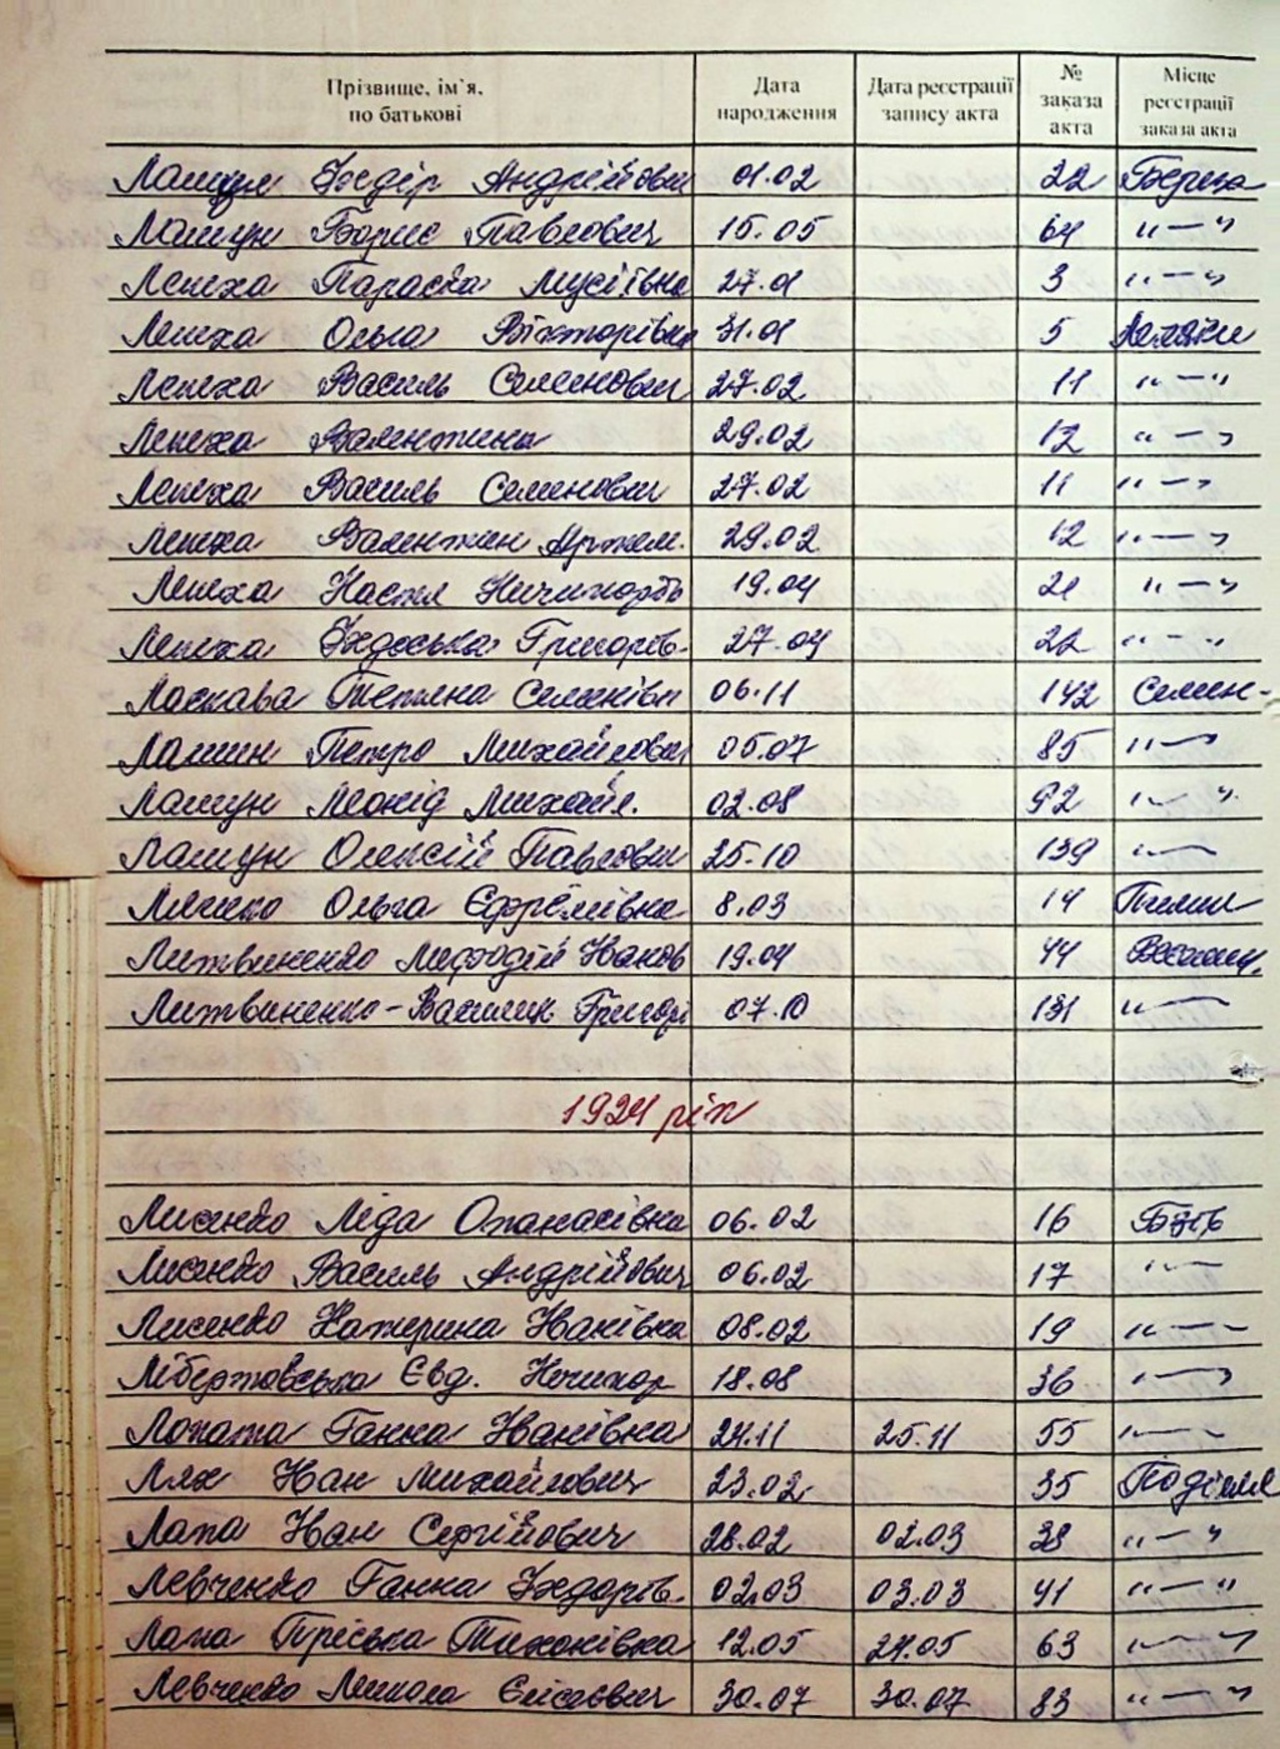 Прізвище, ім`я, по батькові Дата народження Дата реєстрації запису акта № заказа акта Місце реєстрації заказа акта
Лашун Федір Андрійович 01.02 22
Лашун Борис Павлович 15.05 64 " — "
Лепеха Параска Мусіївна 27.01 3 " — "
Лепеха Ольга Вікторівна 31.01 5
Лепеха Василь Семенович 27.02 11 " — "
Лепеха Валентина 29.02 12 " — "
Лепеха Василь Семенович 27.02 11 " — "
Лепеха Валентин Артем. 29.02 12 " — "
Лепеха Настя Ничипорів 19.04 21 " — "
Лепеха Федоська Григорів. 27.04 22 " — "
Ласкава Тетяна Семенівн 06.11 142 Семен-
Лашин Петро Михайлович 05.07 85 " —
Лашун Леонід Михайл. 02.08 92 " — "
Лашун Олексій Павлович 25.10 139 " —
Ольга Єфремівна 8.03 14
Литвиненко Мефодій Іванов 19.04 44
Литвиненко - Василик Григорі 07.10 131 " —
1924 рік
Лисенко Ліда Опанасівна 06.02 16
Лисенко Василь Андрійович 06.02 17 " —
Лисенко Катерина Іванівна 08.02 19 " —
Лібертовська Євд. Ничипор 18.08 36 " —
Лопата Ганна Іванівна 24.11 25.11 55 " —
Лях Іван Михайлович 23.02 35 Поділля
Лапа Іван Сергійович 28.02 02.03 38 " — "
Левченко Ганна Федорів. 02.03 03.03 41 " — "
Лапа Пріська Тихонівна 12.05 24.05 63 " — "
Левченко Микола Єлісеєвич 30.07 30.07 83 " — "